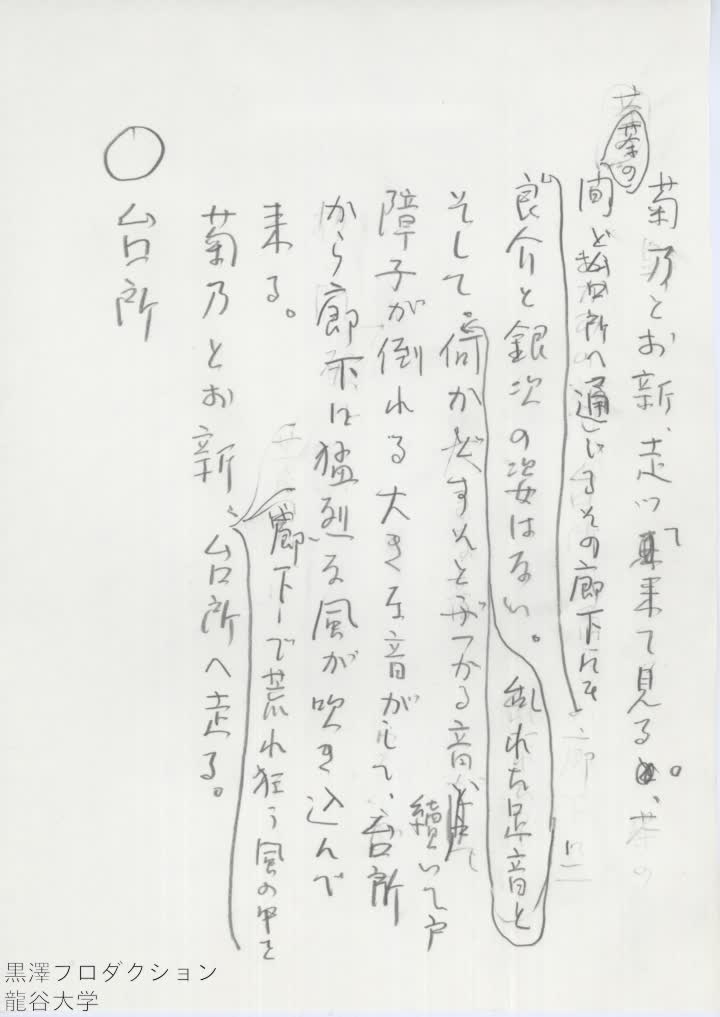 菊乃とお新、走って来て見る。
茶の
間と台所へ通じるその廊下にも
良介と銀次の姿はない。乱れた足音と
そして、何かゞずしんとぶつかる音が
続いて戸
障子が倒れる大きな音がして、台所
から廊下に猛烈な風が吹き込んで
来る。
廊下で荒れ狂う風の中を
菊乃とお新、台所へ走る。
○台所
黒澤プロダクション
龍谷大学